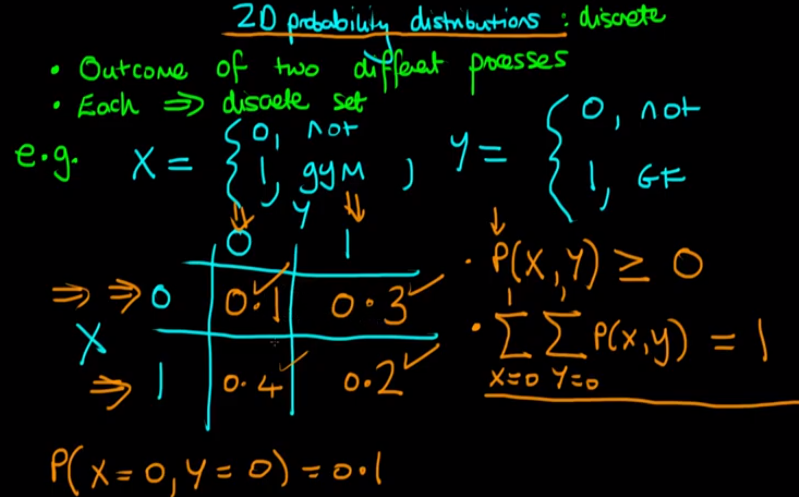 2D probability distributions : discrete
• Outcome of two different processes
• Each ⇒ discrete set
e.g. X = { 0, not
1, gym , Y = { 0, not
1, GF
Y
0 1
X
0 0.1 0.3
1 0.4 0.2
• P(X,Y) ≥ 0
• 1 1
∑ ∑ P(X,Y) = 1
X=0 Y=0
P(X=0, Y=0) = 0.1